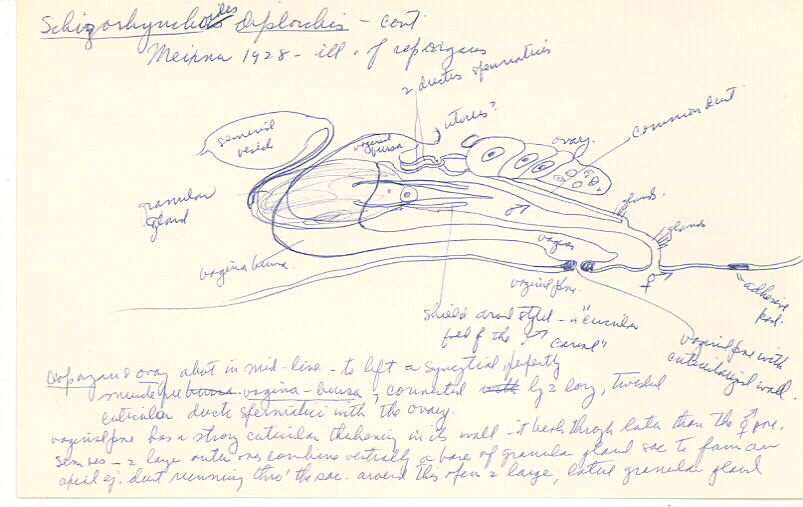 Schizorhynchoides diplorchis – cont
Meixner 1928 – ill. of rep organs
2 ductus spermatici
uterus?
seminal
vesicle
vaginal
bursa
ovary
common duct
granular
gland
glands
glands
♂
vagina
vagina bursa
vaginal pore
♀
adhesive
shield around stylet – a "cuticular
fold of the ♂ canal"
vaginal pore with
cuticularized wall
ovary abut in mid-line – to left a syncytial
bursa vagina-bursa, connected with by 2 long, twisted
cuticular ducti spermatici with the ovary.
vaginal pore has a strong cuticular thickening in its wall – it breaks through later than the pore.
2 large outer ones combine ventrally base of granular gland sac to form an
ej. duct running thro' the sac. around this open 2 large, lateral granular gland